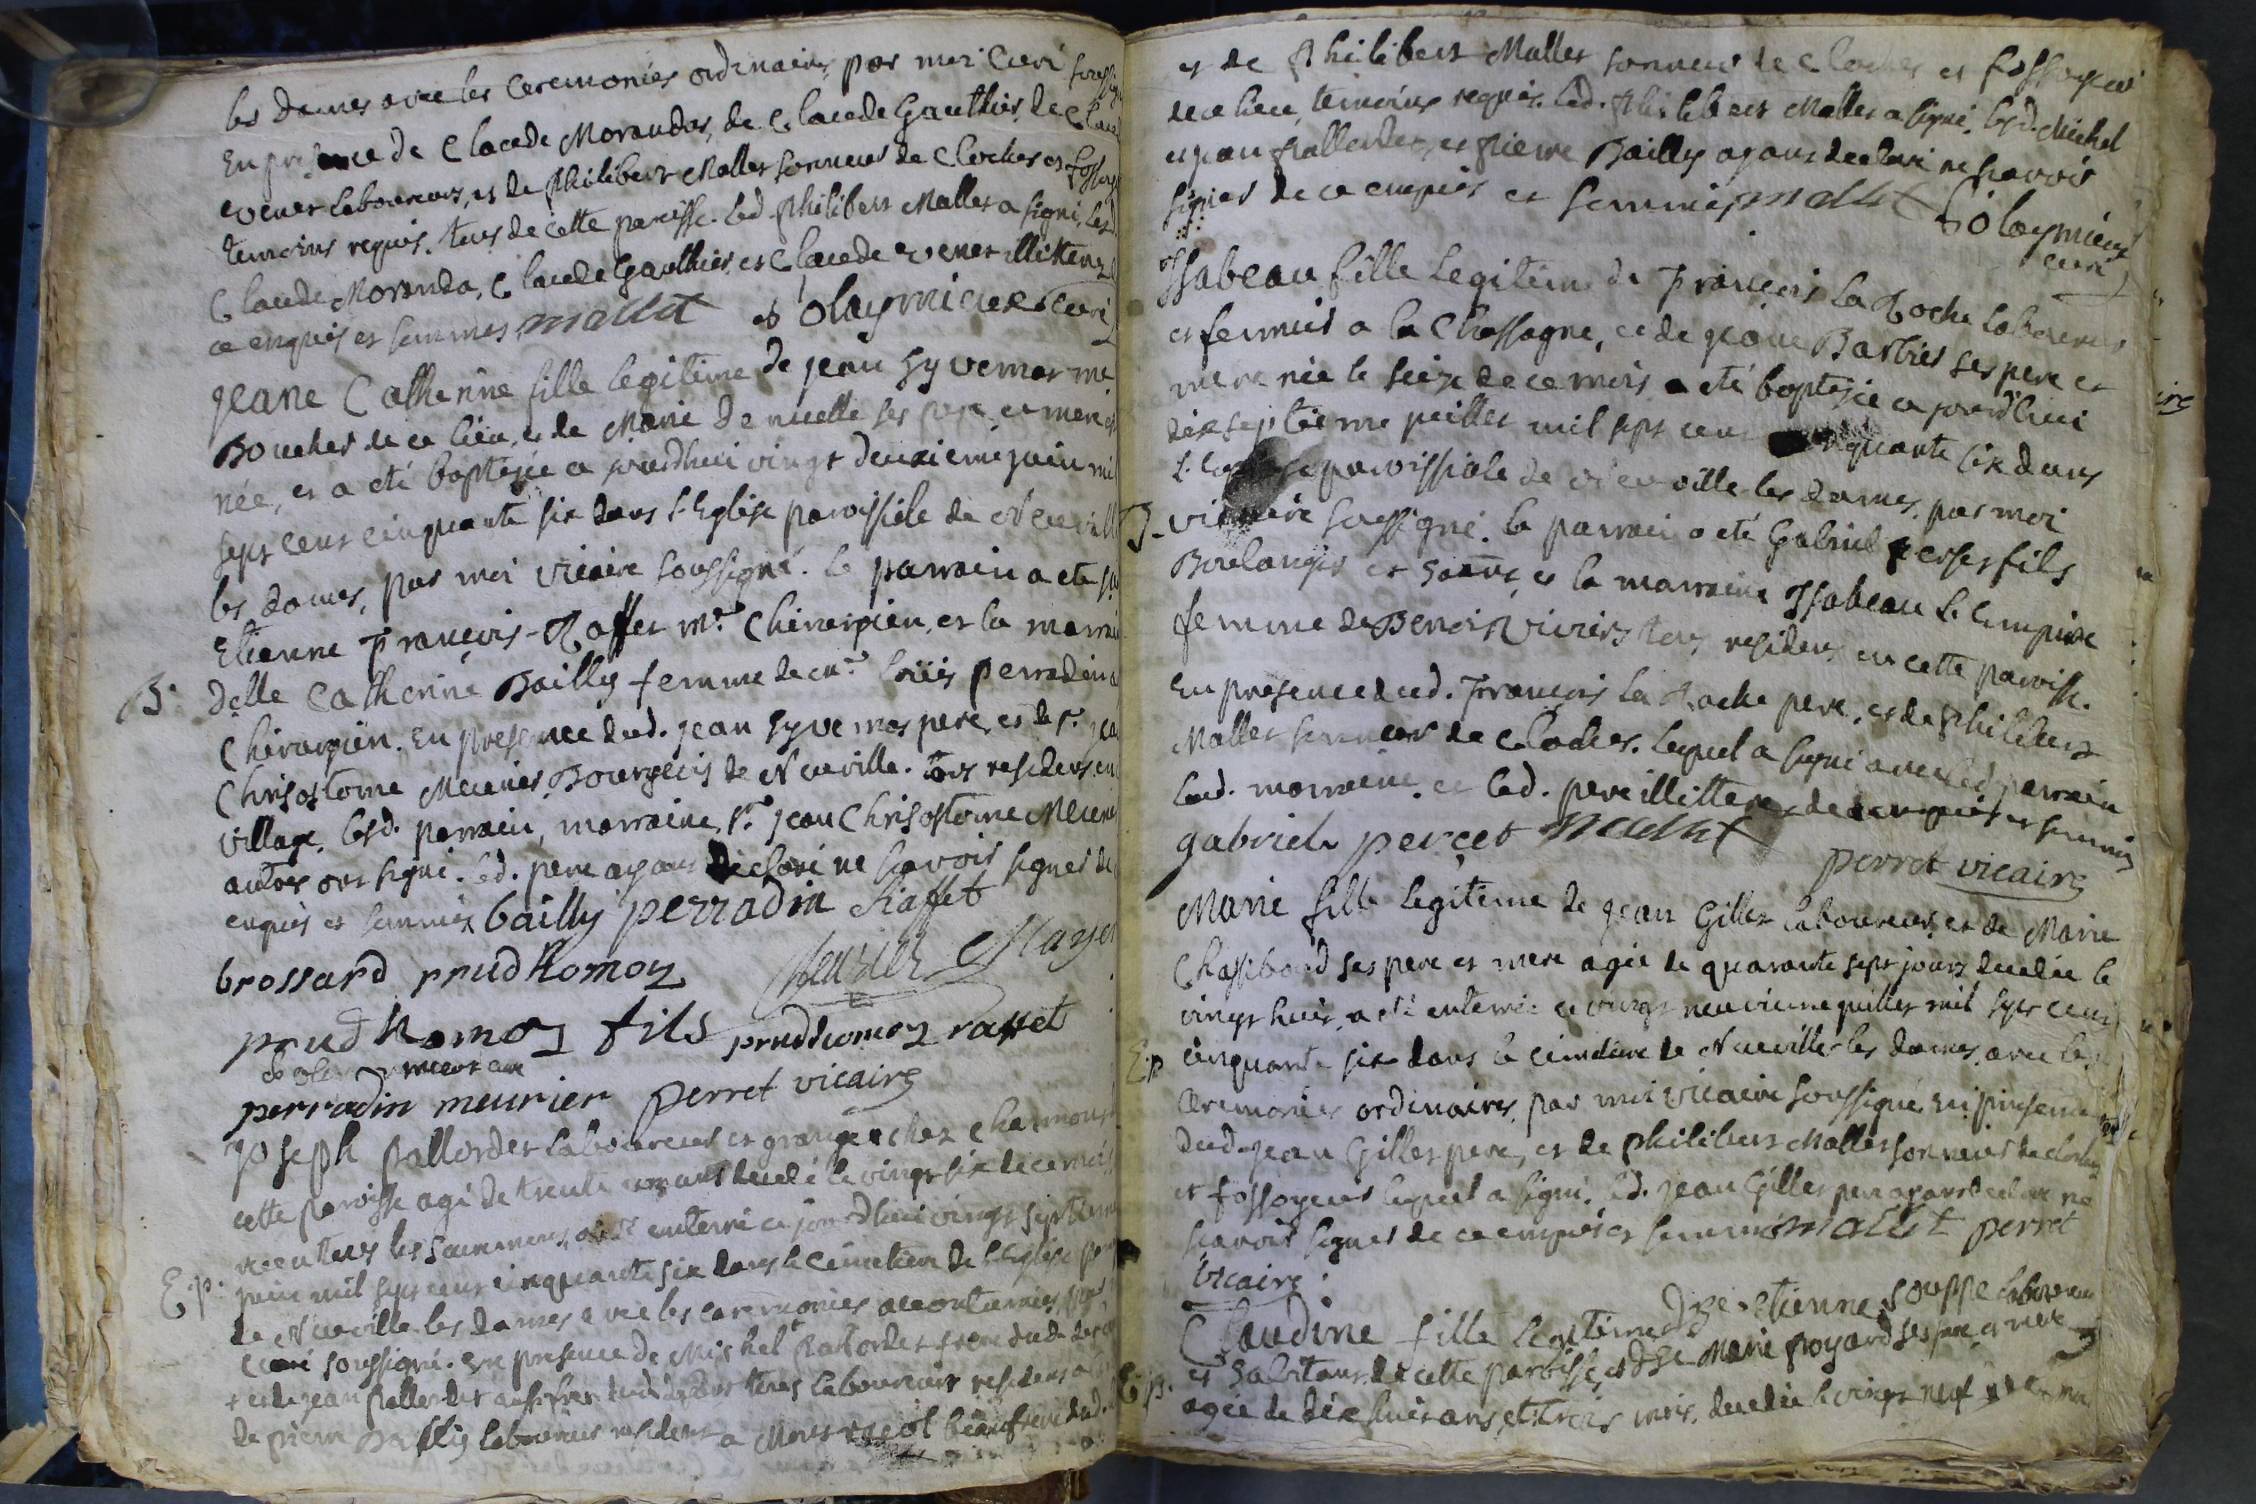 les dames avec les ceremonies ordinaires, par moi Curé soussigné
En presence de Claude Morandas, de Claude Gauthier, de Claude
Vener laboureurs, et de Philibert Mallet sonneur de Cloches et fossoy
temoins requis. tous de cette paroisse. Led. Philibert Mallet a signé, lesd.
Claude Moranda, Claude Gauthier, et Claude Vener illitterez de
ce enquis et sommes mallet curé
Jeane Catherine fille legitime de jean Syvemar me
Boucher de ce lieu, et de Marie Denuelle ses pere et mere est
née, et a eté baptisée ce jourdhui vingt deuxieme juin mil
sept cent cinquante six dans l'Eglise paroissiale de Neuville
les dames, par moi vicaire soussigné. le parrain a eté
Etienne François Raffet mre. Chirurgien, et la marrai
B. delle Catherine Bailly femme de mre. Loüis perradin
Chirurgien. En presence dud. jean Syvemar pere, et de sr. jea
Chrisostome Meurier Bourgeois de Neuville. tous residens en
village. lesd. parrain, marraine, sr. jean Chrisostome Meurier
autres ont signé. led. pere ayant declaré ne scavoir signer de
enquis et sommé bailly perradin Raffet
brossard prudhomoz
prudhomoz fils prudhomoz raffet
perradin meurier perret vicaire
Joseph pallordet laboureur et granger chez Charmont
cette paroisse agé de trente ans decedé le vingt six de ce mois
receu tous les sacremens, a eté enterré ce jourdhui vingt septieme
E.p. juin mil sept cent cinquante six dans le Cimetiere de l'Eglise
de Neuville les dames avec les ceremonies accoutumées, par
Curé soussigné. En presence de Michel Pallordet frere dud.
+ et de jean pallordet aussi frere tous laboureurs residens
de pierre Bailly laboureur resident a beaufrere dud.
et de Philibert Mallet sonneur de Cloches et fossoyeur
de ce lieu, temoins requis. Led. Philibert Mallet a signé. lesd. Michel
et jean pallordet, et pierre Bailly ayant declaré ne scavoir
signer de ce enquis et sommés mallet
curé
Isabeau fille legitime de François La Roche laboureur
et fermier a la Chassagne, et de jeane Barbier ses pere et
mere née le seize de ce mois a eté baptisée ce jourdhui
dixseptieme juillet mil sept cent cinquante six dans
l'Eglise paroissiale de Neuville les dames, par moi
B. vicaire soussigné. le parrain a eté Gabriel fils
Boulanger et la marraine Isabeau
femme de Benoit tous residens en cette paroisse.
En presence dud. François La Roche pere, et de Philibert
Mallet sonneur de Cloches. lequel a signé avec led. parrain
lad. marraine. et led. pere illitterez de ce enquis et sommés
gabriel percet mallet
perret vicaire
Marie fille legitime de jean Gillet laboureur, et de Marie
Chassiboud ses pere et mere agée de quarante sept jours decedée le
vingt huit, a eté enterrée ce vingt neuvieme juillet mil sept cent
E.p. cinquante six dans le cimetiere de Neuville les dames, avec les
ceremonies ordinaires, par moi vicaire soussigné, en presence
dud. jean Gillet pere, et de philibert Mallet sonneur de cloches
et fossoyeur lequel a signé. led. jean Gillet pere ayant declaré ne
scavoir signer de ce enquis et sommé mallet perret
vicaire
Claudine fille legitime d'Etienne Souppe laboureur
et habitant de cette paroisse, et de Marie poyard ses pere et mere
E.p. agée de dix huit ans et trois mois, decedée le vingt neuf